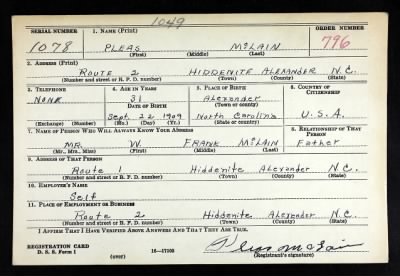 1049
SERIAL NUMBER 1. NAME (Print) ORDER NUMBER
1078 PLEAS McLAIN 796
(First) (Middle) (Last)
2. ADDRESS (Print)
ROUTE 2 HIDDENITE ALEXANDER N.C.
(Number and street or R. F. D. number) (Town) (County) (State)
3. TELEPHONE 4. AGE IN YEARS 5. PLACE OF BIRTH 6. COUNTRY OF CITIZENSHIP
NONE 31 Alexander
DATE OF BIRTH (Town or county)
Sept. 22 1909 North Carolina U.S.A.
(Exchange) (Number) (Mo.) (Day) (Yr.) (State or country)
7. NAME OF PERSON WHO WILL ALWAYS KNOW YOUR ADDRESS 8. RELATIONSHIP OF THAT PERSON
MR. W. FRANK McLAIN Father
(Mr., Mrs., Miss) (First) (Middle) (Last)
9. ADDRESS OF THAT PERSON
Route 1 Hiddenite Alexander N.C.
(Number and street or R. F. D. number) (Town) (County) (State)
10. EMPLOYER'S NAME
Self
11. PLACE OF EMPLOYMENT OR BUSINESS
Route 2 Hiddenite Alexander N.C.
(Number and street or R. F. D. number) (Town) (County) (State)
I AFFIRM THAT I HAVE VERIFIED ABOVE ANSWERS AND THAT THEY ARE TRUE.
REGISTRATION CARD Pleas McLain
D. S. S. Form 1 (over) 16—17105 (Registrant's signature)